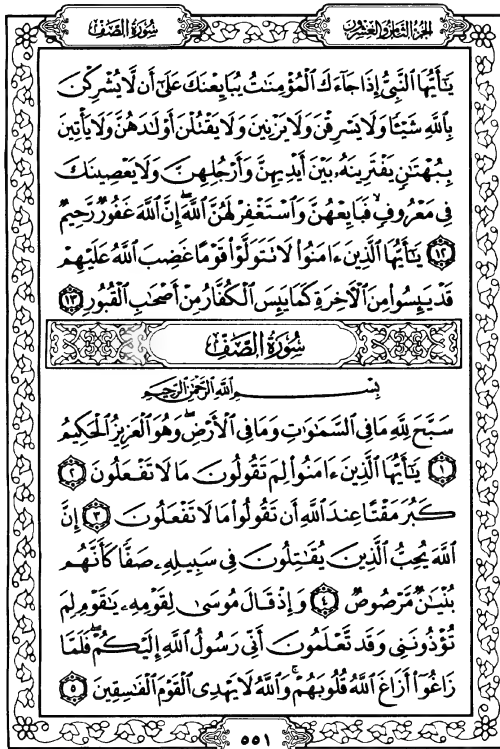 سُورَةُ الصَّفِّ
الجزء الثامن والعشرون
يَٰٓأَيُّهَا ٱلنَّبِىُّ إِذَا جَآءَكَ ٱلْمُؤْمِنَٰتُ يُبَايِعْنَكَ عَلَىٰٓ أَن لَّا يُشْرِكْنَ
بِٱللَّهِ شَيْـًٔا وَلَا يَسْرِقْنَ وَلَا يَزْنِينَ وَلَا يَقْتُلْنَ أَوْلَٰدَهُنَّ وَلَا يَأْتِينَ
بِبُهْتَٰنٍ يَفْتَرِينَهُۥ بَيْنَ أَيْدِيهِنَّ وَأَرْجُلِهِنَّ وَلَا يَعْصِينَكَ
فِى مَعْرُوفٍ ۙ فَبَايِعْهُنَّ وَٱسْتَغْفِرْ لَهُنَّ ٱللَّهَ ۖ إِنَّ ٱللَّهَ غَفُورٌ رَّحِيمٌ
١٢ يَٰٓأَيُّهَا ٱلَّذِينَ ءَامَنُوا۟ لَا تَتَوَلَّوْا۟ قَوْمًا غَضِبَ ٱللَّهُ عَلَيْهِمْ
قَدْ يَئِسُوا۟ مِنَ ٱلْءَاخِرَةِ كَمَا يَئِسَ ٱلْكُفَّارُ مِنْ أَصْحَٰبِ ٱلْقُبُورِ ١٣
سُورَةُ الصَّفِّ
بِسْمِ ٱللَّهِ ٱلرَّحْمَٰنِ ٱلرَّحِيمِ
سَبَّحَ لِلَّهِ مَا فِى ٱلسَّمَٰوَٰتِ وَمَا فِى ٱلْأَرْضِ ۖ وَهُوَ ٱلْعَزِيزُ ٱلْحَكِيمُ
١ يَٰٓأَيُّهَا ٱلَّذِينَ ءَامَنُوا۟ لِمَ تَقُولُونَ مَا لَا تَفْعَلُونَ ٢
كَبُرَ مَقْتًا عِندَ ٱللَّهِ أَن تَقُولُوا۟ مَا لَا تَفْعَلُونَ ٣ إِنَّ
ٱللَّهَ يُحِبُّ ٱلَّذِينَ يُقَٰتِلُونَ فِى سَبِيلِهِۦ صَفًّا كَأَنَّهُم
بُنْيَٰنٌ مَّرْصُوصٌ ٤ وَإِذْ قَالَ مُوسَىٰ لِقَوْمِهِۦ يَٰقَوْمِ لِمَ
تُؤْذُونَنِى وَقَد تَّعْلَمُونَ أَنِّى رَسُولُ ٱللَّهِ إِلَيْكُمْ ۖ فَلَمَّا
زَاغُوٓا۟ أَزَاغَ ٱللَّهُ قُلُوبَهُمْ ۚ وَٱللَّهُ لَا يَهْدِى ٱلْقَوْمَ ٱلْفَٰسِقِينَ ٥
٥٥١